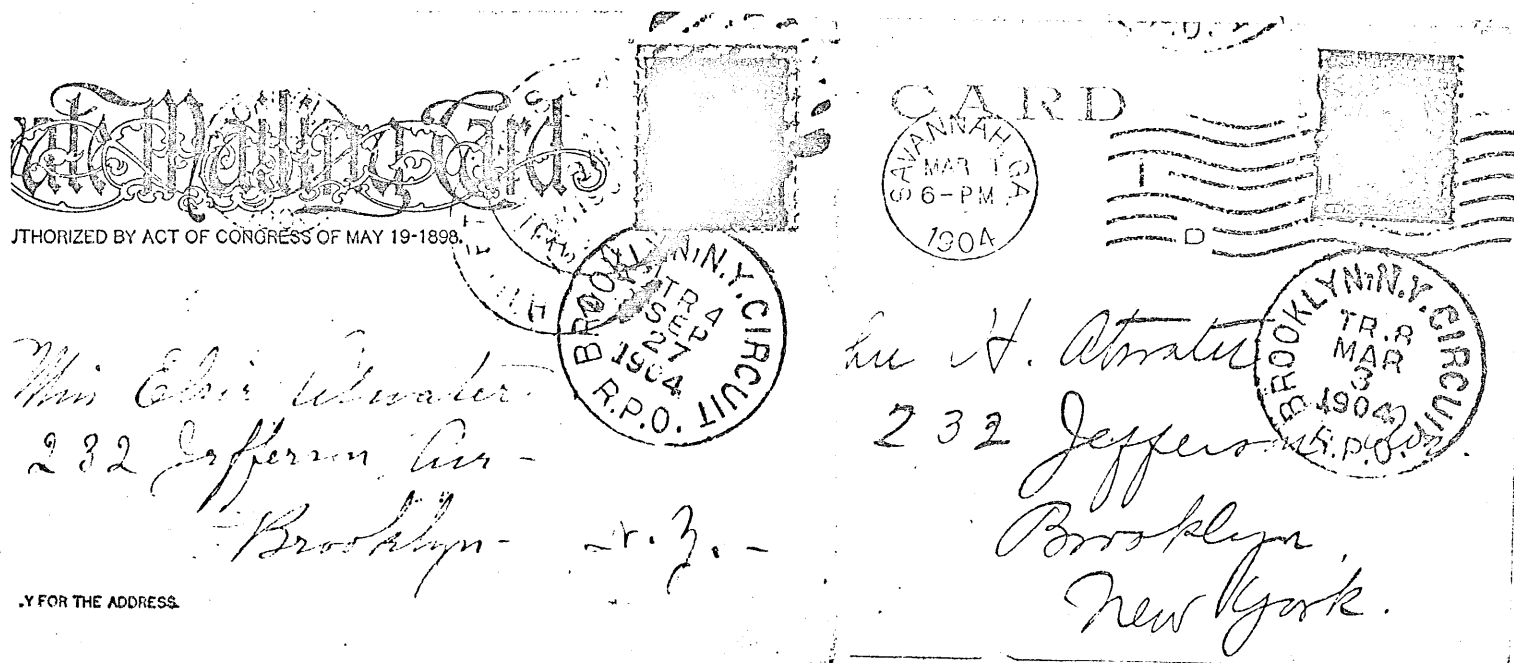 ate Mailing Card
JTHORIZED BY ACT OF CONGRESS OF MAY 19-1898.
BROOKLYN, N.Y. CIRCUIT
TR 4
SEP
27
1904
R.P.O.
Miss Elsie Atwater
232 Jefferson Ave -
Brooklyn - N. Y. -
.Y FOR THE ADDRESS.
CARD
SAVANNAH GA.
MAR 1
6-PM
1904
D
BROOKLYN, N.Y. CIRCUIT
TR.R
MAR
3
1904
R.P.O.
H. Atwater
232 Jefferson
Brooklyn,
New York.